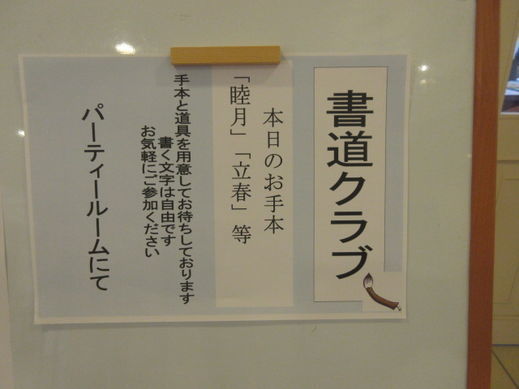 書道クラブ
本日のお手本
「睦月」「立春」等
手本と道具を用意してお待ちしております
書く文字は自由です
お気軽にご参加ください
パーティールームにて